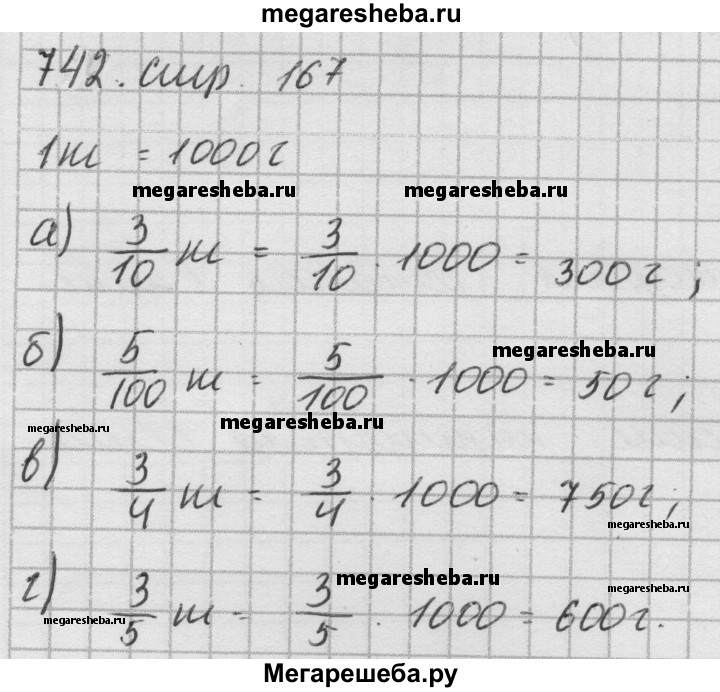 megaresheba.ru
742. стр. 167
1т = 1000г
megaresheba.ru megaresheba.ru
а) 3/10 т = 3/10 · 1000 = 300г;
megaresheba.ru
б) 5/100 т = 5/100 · 1000 = 50г;
megaresheba.ru megaresheba.ru
в) 3/4 т = 3/4 · 1000 = 750г;
megaresheba.ru
megaresheba.ru megaresheba.ru
г) 3/5 т = 3/5 · 1000 = 600г.
megaresheba.ru
Мегарешеба.ру